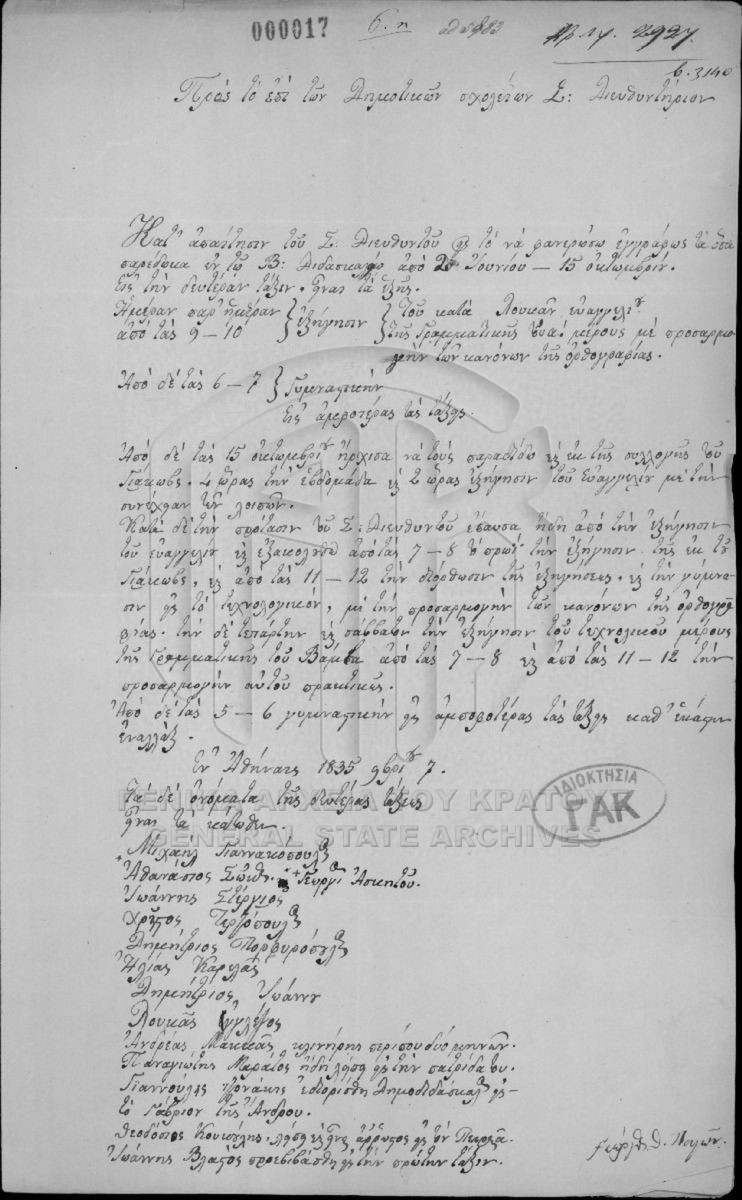 000017 6.η
Αρ. πρ. 2927.
β. 3140
Πρὸς τὸ ἐπὶ τῶν Δημοτικῶν σχολείων Σ: Διευθυντήριον
Κατ' ἀπαίτησιν τοῦ Σ: Διευθυντοῦ εἰς τὸ νὰ φανερώσω ἐγγράφως τὰ ὁποῖα
παρέδωκα ἐν τῷ Β: Διδασκαλείῳ ἀπὸ Ἰουνίου – 15 ὀκτωμβρίου.
Εἰς τὴν δευτέραν τάξιν. εἶναι τὰ ἑξῆς.
Ἡμέραν παρ' ἡμέραν } ἐξήγησιν { Τοῦ κατὰ Λουκᾶν εὐαγγελίου
ἀπὸ τὰς 9 – 10 τῆς Γραμματικῆς μέρους μὲ προσαρμο-
γὴν τῶν κανόνων τῆς ὀρθογραφίας.
Ἀπὸ δὲ τὰς 6 – 7 } Γυμναστικὴν
Εἰς ἀμφοτέρας τὰς τάξεις.
Ἀπὸ δὲ τὰς 15 ὀκτωμβρίου ἤρχισα νὰ τοὺς παραδίδω καὶ ἐκ τῆς συλλογῆς τοῦ
Γιάκωβς. 4 ὥρας τὴν ἑβδομάδα καὶ 2 ὥρας ἐξήγησιν τοῦ Εὐαγγελίου μὲ τὴν
συνέχειαν τῶν λοιπῶν.
Κατὰ δὲ τὴν πρότασιν τοῦ Σ: Διευθυντοῦ ἔπαυσα ἤδη ἀπὸ τὴν ἐξήγησιν
τοῦ εὐαγγελίου καὶ ἐξακολουθῶ ἀπὸ τὰς 7 – 8 τὸ πρωὶ τὴν ἐξήγησιν τῆς ἐκ τοῦ
Γιάκωβς, καὶ ἀπὸ τὰς 11 – 12 τὴν διόρθωσιν τῆς ἐξηγήσεως, καὶ τὴν γύμνα-
σιν εἰς τὸ τεχνολογικόν, μὲ τὴν προσαρμογὴν τῶν κανόνων τῆς ὀρθογρα-
φίας. τὴν δὲ τετάρτην καὶ σάββατον τὴν ἐξήγησιν τοῦ τεχνολικοῦ μέρους
τῆς Γραμματικῆς τοῦ Βάμβα ἀπὸ τὰς 7 – 8 καὶ ἀπὸ τὰς 11 – 12 τὴν
προσαρμογὴν αὐτοῦ πρακτικῶς.
Ἀπὸ δὲ τὰς 5 – 6 γυμναστικὴν εἰς ἀμφοτέρας τὰς τάξεις καθ' ἑκάστην
ἐναλλάξ.
Ἐν Ἀθήναις 1835 9βρίου 7.
Τὰ δὲ ὀνόματα τῆς δευτέρας τάξεως
εἶναι τὰ κάτωθι
Μιχαὴλ Γιαννακόπουλος
Ἀθανάσιος + Γεώργιος Ἀσκητοῦ.
Ἰωάννης Στέργιος
Χρῆστος Τερζόπουλος
Δημήτριος Πορφυρόπουλος
Ἠλίας Καρελᾶς
Δημήτριος Ἰωάννου
Λουκᾶς
Ἀνδρέας Μακκᾶς, κλινήρης περίπου δύο μηνῶν.
Παναγιώτης Μαραῖος ἤδη λείπει εἰς τὴν πατρίδα του.
Γιαννούλης Τζονάκης ἐδιορίσθη Δημοδιδάσκαλος εἰς
τὸ Γάβριον τῆς Ἄνδρου.
Θεοδόσιος λείπει καὶ εἶναι ἄρρωστος εἰς τὸν Πειραιᾶ.
Ἰωάννης Βλάχος προεβιβάσθη εἰς τὴν πρώτην τάξιν.
ΙΔΙΟΚΤΗΣΙΑ
ΓΑΚ
ΓΕΝΙΚΑ ΑΡΧΕΙΑ ΤΟΥ ΚΡΑΤΟΥΣ
GENERAL STATE ARCHIVES